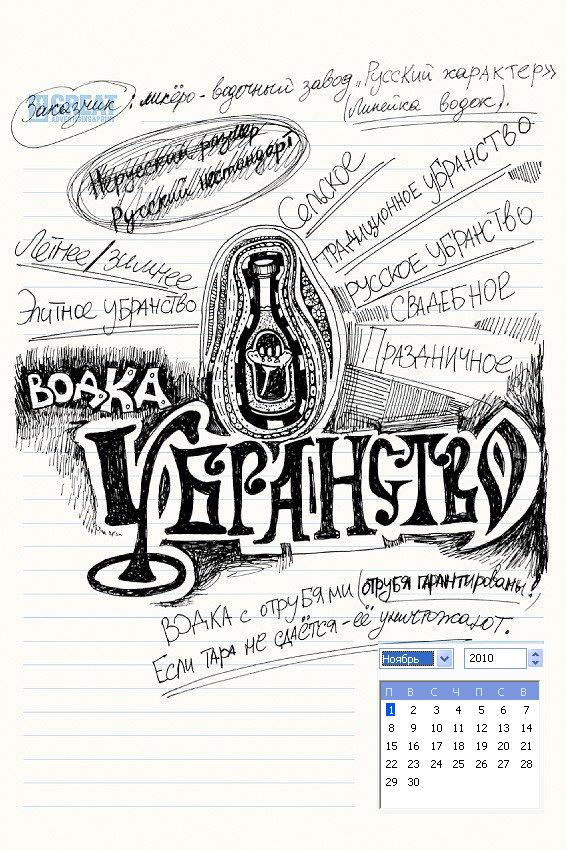 Заказчик: ликёро-водочный завод „Русский характер»
(линейка водок).
GREAT
ADVERTISING&PRINT
Нерусский размер
Русский нестандарт
Сельское
Традиционное убранство
Русское убранство
Свадебное
Праздничное
Летнее/зимнее
Элитное убранство
ВОДКА
УБРАНСТВО
ВОДКА с отрубями (отрубя гарантированы!
Если тара не сдаётся - её уничтожают.
Ноябрь 2010
П В С Ч П С В
1 2 3 4 5 6 7
8 9 10 11 12 13 14
15 16 17 18 19 20 21
22 23 24 25 26 27 28
29 30